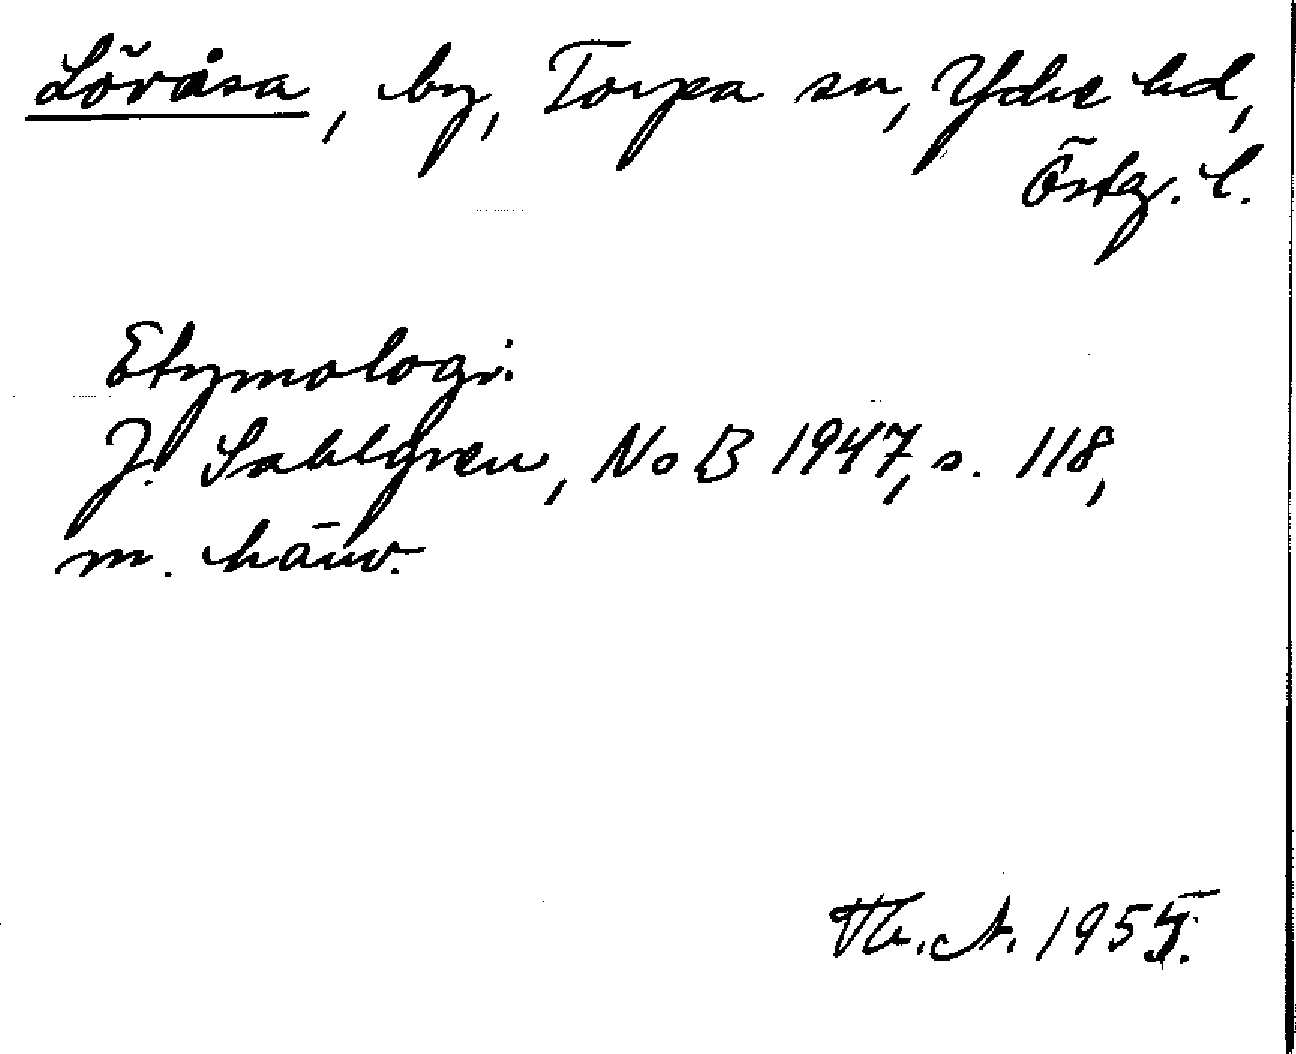 Lövåsa, by, Torpa sn, Ydre hd,
Östg. l.
Etymologi.
J. Sahlgren, NoB 1947, s. 118,
m. hänv.
Th. A. 1955.